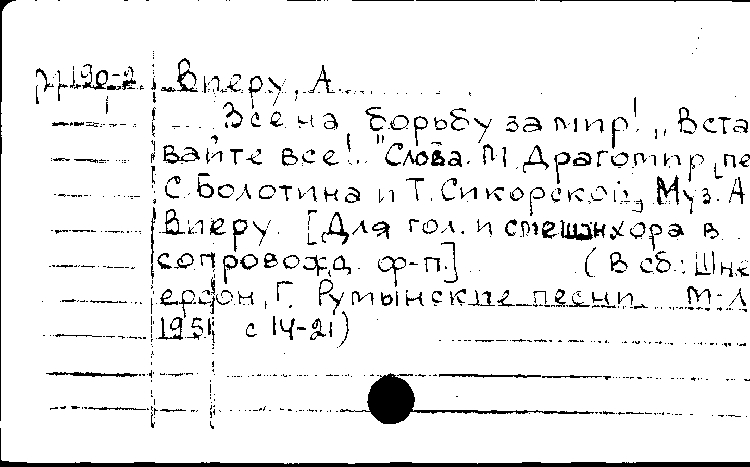 190-2 Вперу, А.
Все на борьбу за мир! „Вста
вайте все!" Слова М. Драгомир, пе
С. Болотина и Т. Сикорской, Муз. А
Вперу. [Для гол. и смешан хора в
сопровожд. ф-п.] (В сб.: Шне
ерсон, Г. Румынские песни. М-Л
1951 с 14-21)